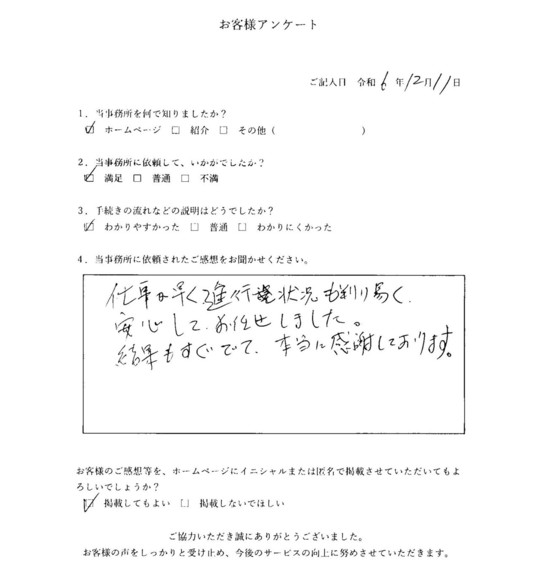 お客様アンケート
ご記入日 令和 6 年 12月 11日
1. 当事務所を何で知りましたか?
☑ ホームページ □ 紹介 □ その他 ( )
2. 当事務所に依頼して、いかがでしたか?
☑ 満足 □ 普通 □ 不満
3. 手続きの流れなどの説明はどうでしたか?
☑ わかりやすかった □ 普通 □ わかりにくかった
4. 当事務所に依頼されたご感想をお聞かせください。
仕事が早く進行状況も判り易く、
安心して、お任せしました。
結果もすぐでて、本当に感謝しております。
お客様のご感想等を、ホームページにイニシャルまたは匿名で掲載させていただいてもよ
ろしいでしょうか?
☑ 掲載してもよい □ 掲載しないでほしい
ご協力いただき誠にありがとうございました。
お客様の声をしっかりと受け止め、今後のサービスの向上に努めさせていただきます。